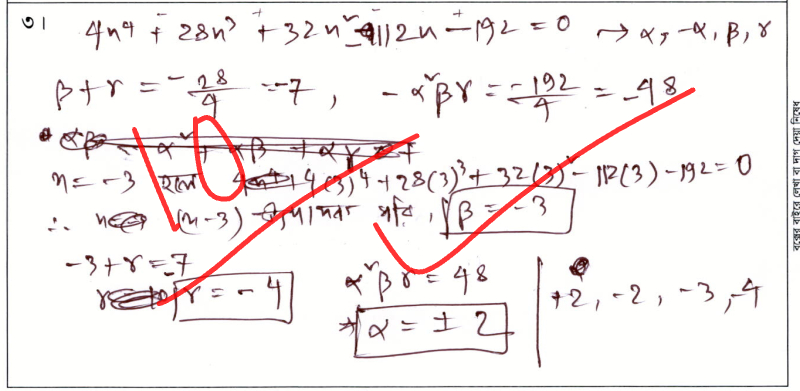 ৩।
4x⁴ + 28x³ + 32x² - 112x - 192 = 0 → α, -α, β, γ
β + γ = -28/4 = -7, -α²βγ = -192/4 = -48
x = -3 হলে 4(3)⁴ + 28(3)³ + 32(3)² - 112(3) - 192 = 0
∴ (x-3) উৎপাদক পাই, β = -3
-3 + γ = -7
γ = -4
α²βγ = 48
α = ± 2
+2, -2, -3, -4
10
বক্সের বাইরে লেখা বা দাগ দেয়া নিষেধ